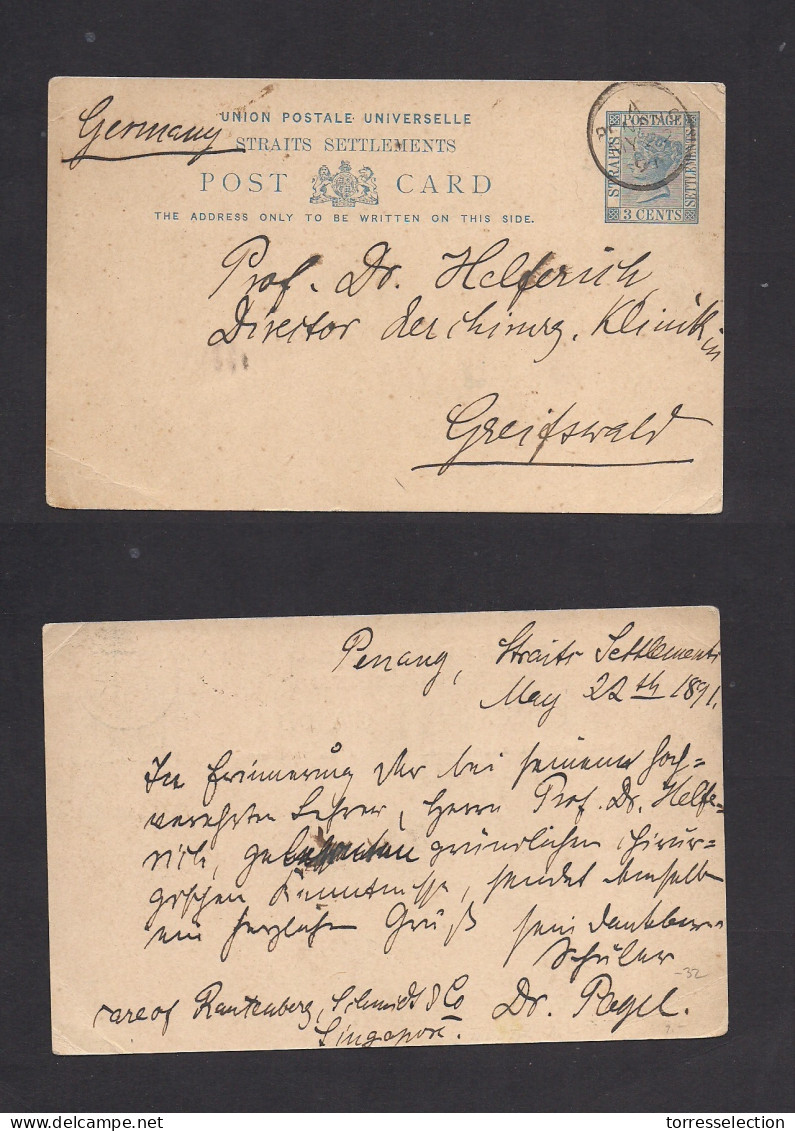 Germany
UNION POSTALE UNIVERSELLE
STRAITS SETTLEMENTS
POST CARD
THE ADDRESS ONLY TO BE WRITTEN ON THIS SIDE.
STRAITS POSTAGE SETTLEMENTS
3 CENTS
Prof. Dr. Helferich
Director der chirurg. Klinik
in
Greifswald
Penang, Straits Settlements
May 22th 1891.
In Erinnerung der bei seinem hoch=
verehrten Lehrer, Herrn Prof. Dr. Helfe=
rich, gründlichen chirur=
gischen Kenntnisse, sendet demselben
ein herzlichen Gruß sein dankbarer
Schüler
-32
care of Rautenberg, Schmidt & Co Dr. Pagel.
Singapore.
torresselection